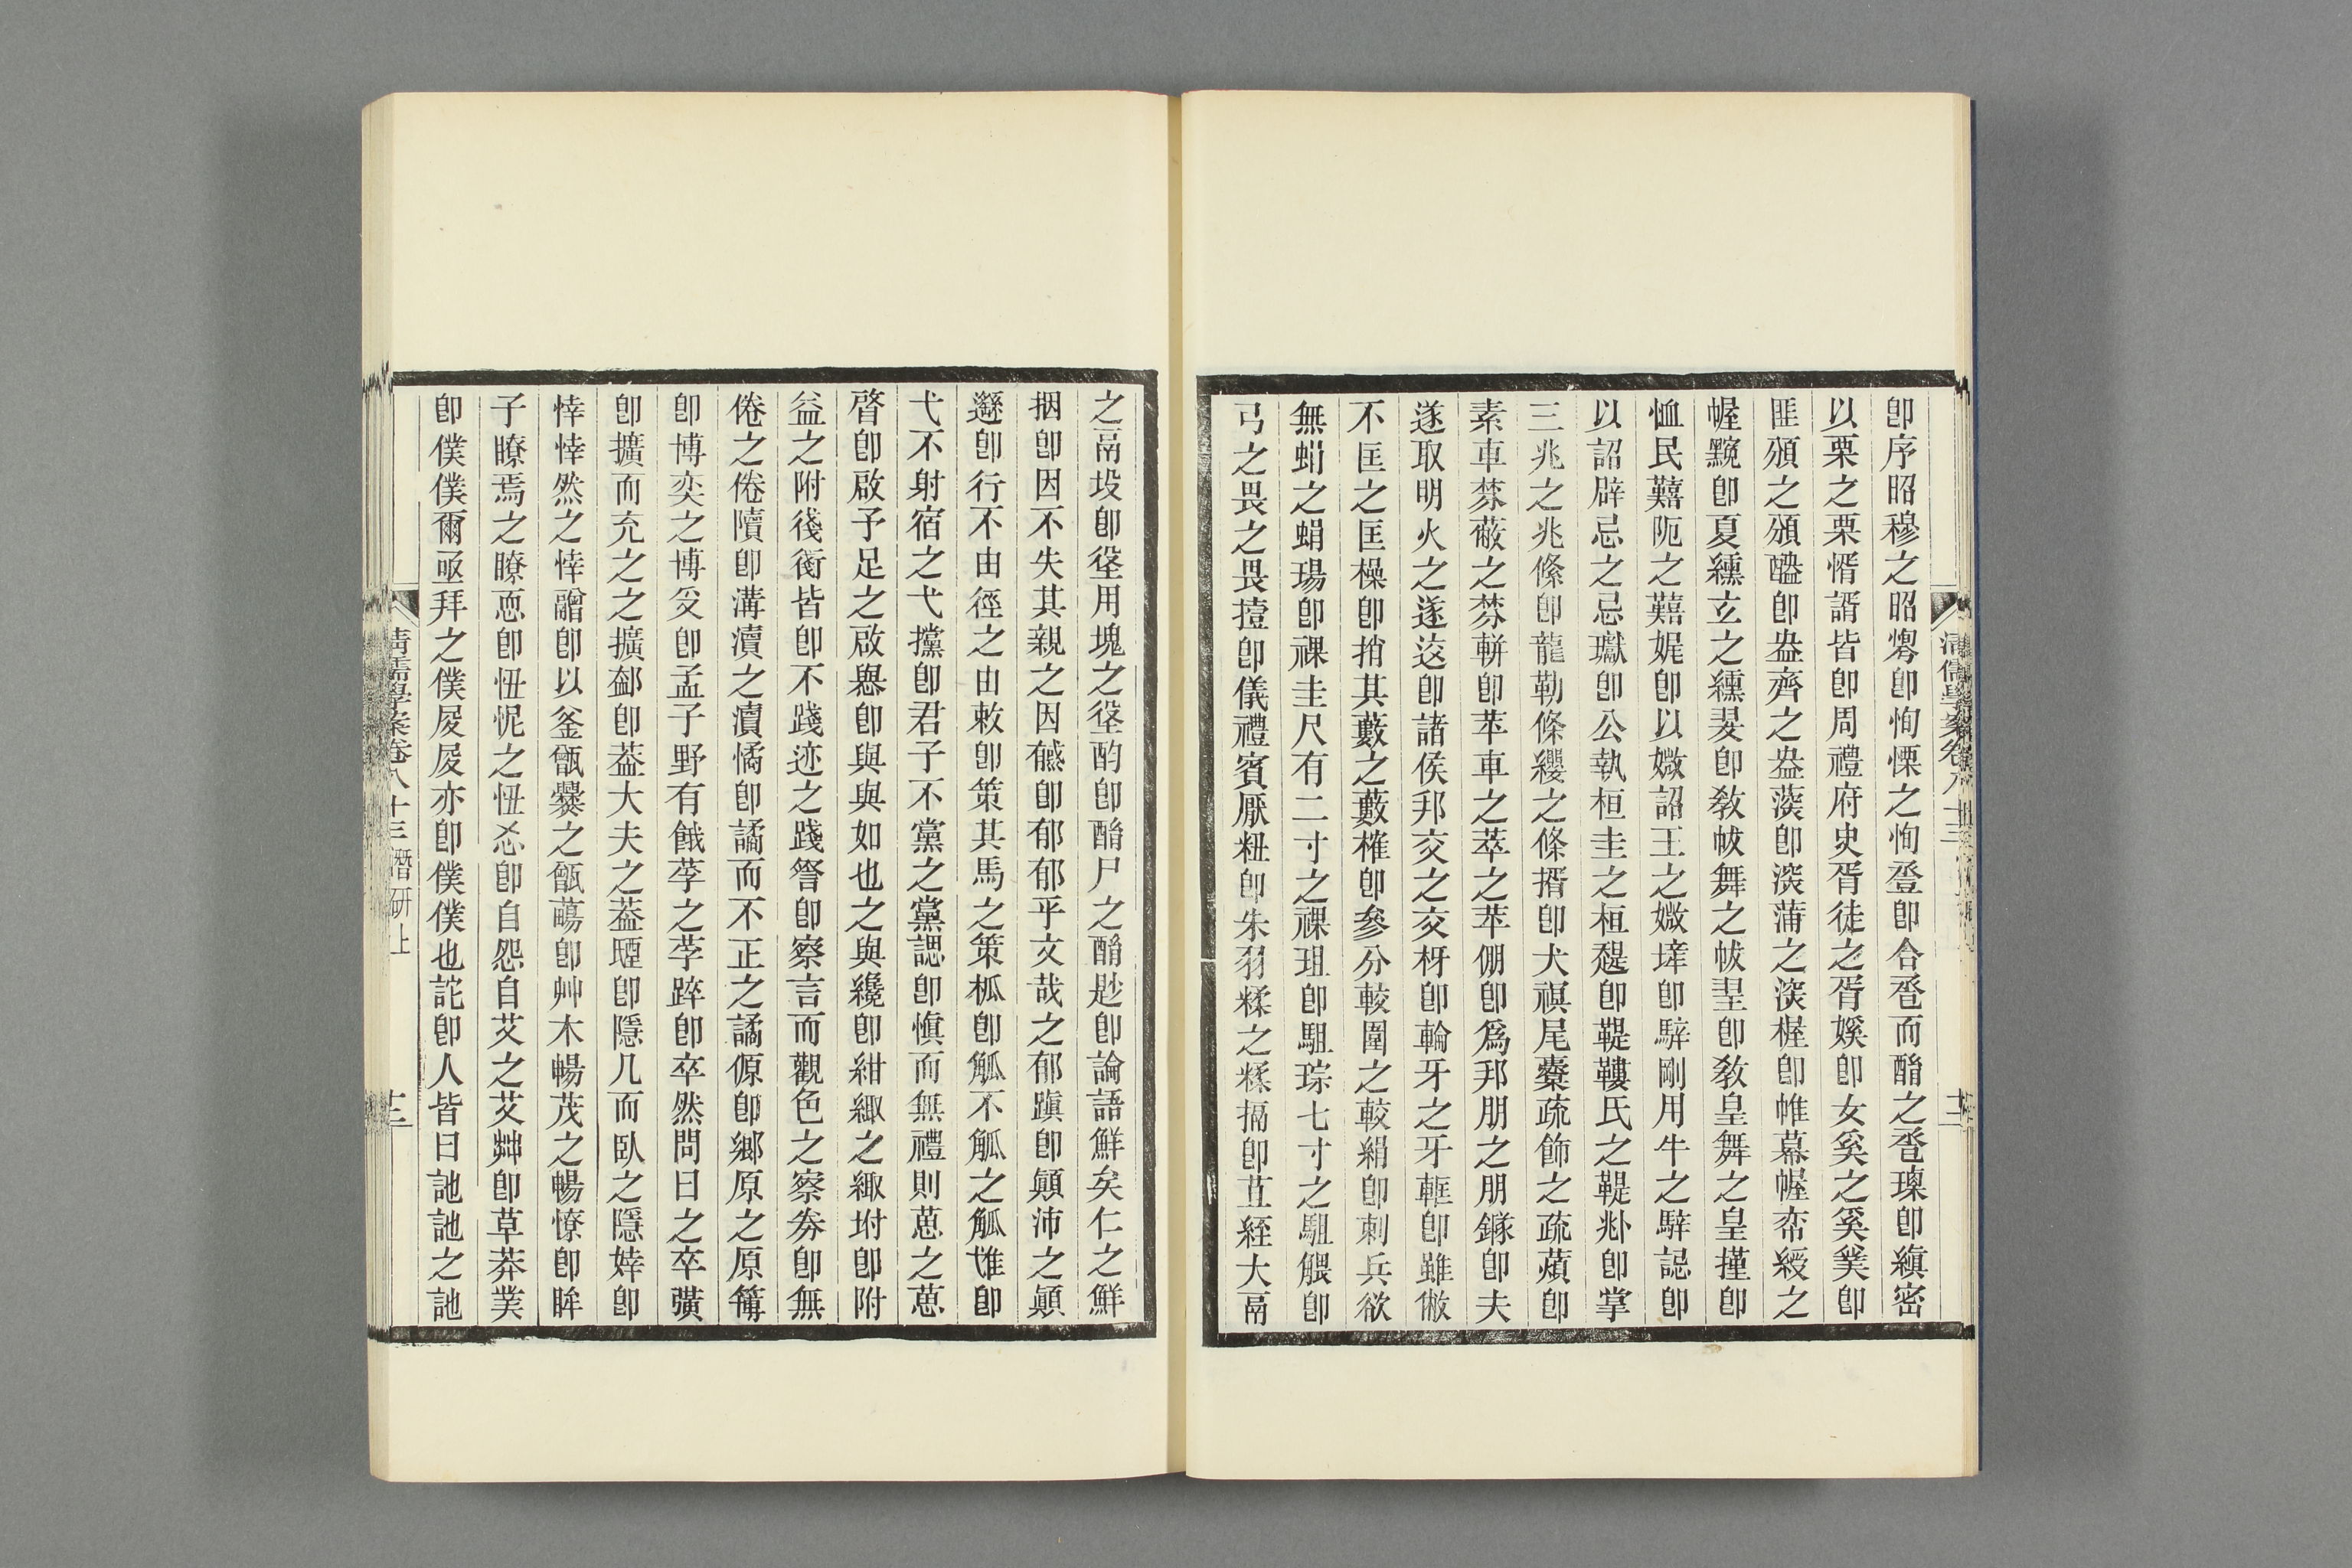 卽序昭穆之昭㷀卽恂慄之恂卺卽合巹而酳之巹璪卽縝密
以栗之栗惰諝皆卽周禮府史胥徒之胥媄卽女奚之奚龹卽
匪頒之頒醠卽盎齊之盎蒎卽深蒲之深楃卽帷幕幄帟綬之
幄黦卽夏纁玄之纁翇卽敎帗舞之帗翌卽敎皇舞之皇墐卽
恤民囏阨之囏娓卽以媺詔王之媺垶卽騂剛用牛之騂誋卽
以詔辟忌之忌瓛卽公執桓圭之桓趧卽鞮鞻氏之鞮𡉏卽掌
三兆之兆鞗卽龍勒條纓之條揟卽犬𧜀尾櫜疏飾之疏蕦卽
素車棼蔽之棼輧卽苹車之萃之苹倗卽爲邦朋之朋鐩卽夫
遂取明火之遂这卽諸侯邦交之交枒卽輪牙之牙軭卽雖敝
不匡之匡橾卽捎其藪之藪榷卽參分較圍之較絹卽刺兵欲
無蜎之蜎瑒卽祼圭尺有二寸之祼珇卽駔琮七寸之駔䚈卽
弓之畏之畏擅卽儀禮賓厭粈卽朱羽糅之糅搹卽苴絰大鬲
之鬲坄卽垼用塊之垼酌卽酳尸之酳尟卽論語鮮矣仁之鮮
捆卽因不失其親之因𪑓卽郁郁乎文哉之郁蹎卽顚沛之顚
遯卽行不由徑之由敕卽策其馬之策柧卽觚不觚之觚隿卽
弋不射宿之弋攩卽君子不黨之黨諰卽愼而無禮則葸之葸
啓卽啟予足之啟懇卽與與如也之與纔卽紺緅之緅坿卽附
益之附後衠皆卽不踐迹之踐詧卽察言而觀色之察劵卽無
倦之倦隫卽溝瀆之瀆憰卽譎而不正之譎傆卽鄉原之原簙
卽博奕之博𠬪卽孟子野有餓莩之莩踤卽卒然問曰之卒彉
卽擴而充之之擴郤卽葢大夫之葢𤲞卽隱几而臥之隱婞卽
悻悻然之悻䰝卽以釜甑爨之甑𦾶卽艸木暢茂之暢憭卽眸
子瞭焉之瞭恧卽忸怩之忸𢗏卽自怨自艾之艾茻卽草莽菐
卽僕僕爾亟拜之僕㞞㞞亦卽僕僕也詑卽人皆曰訑訑之訑
清儒學案卷八十三 潛研上
十三